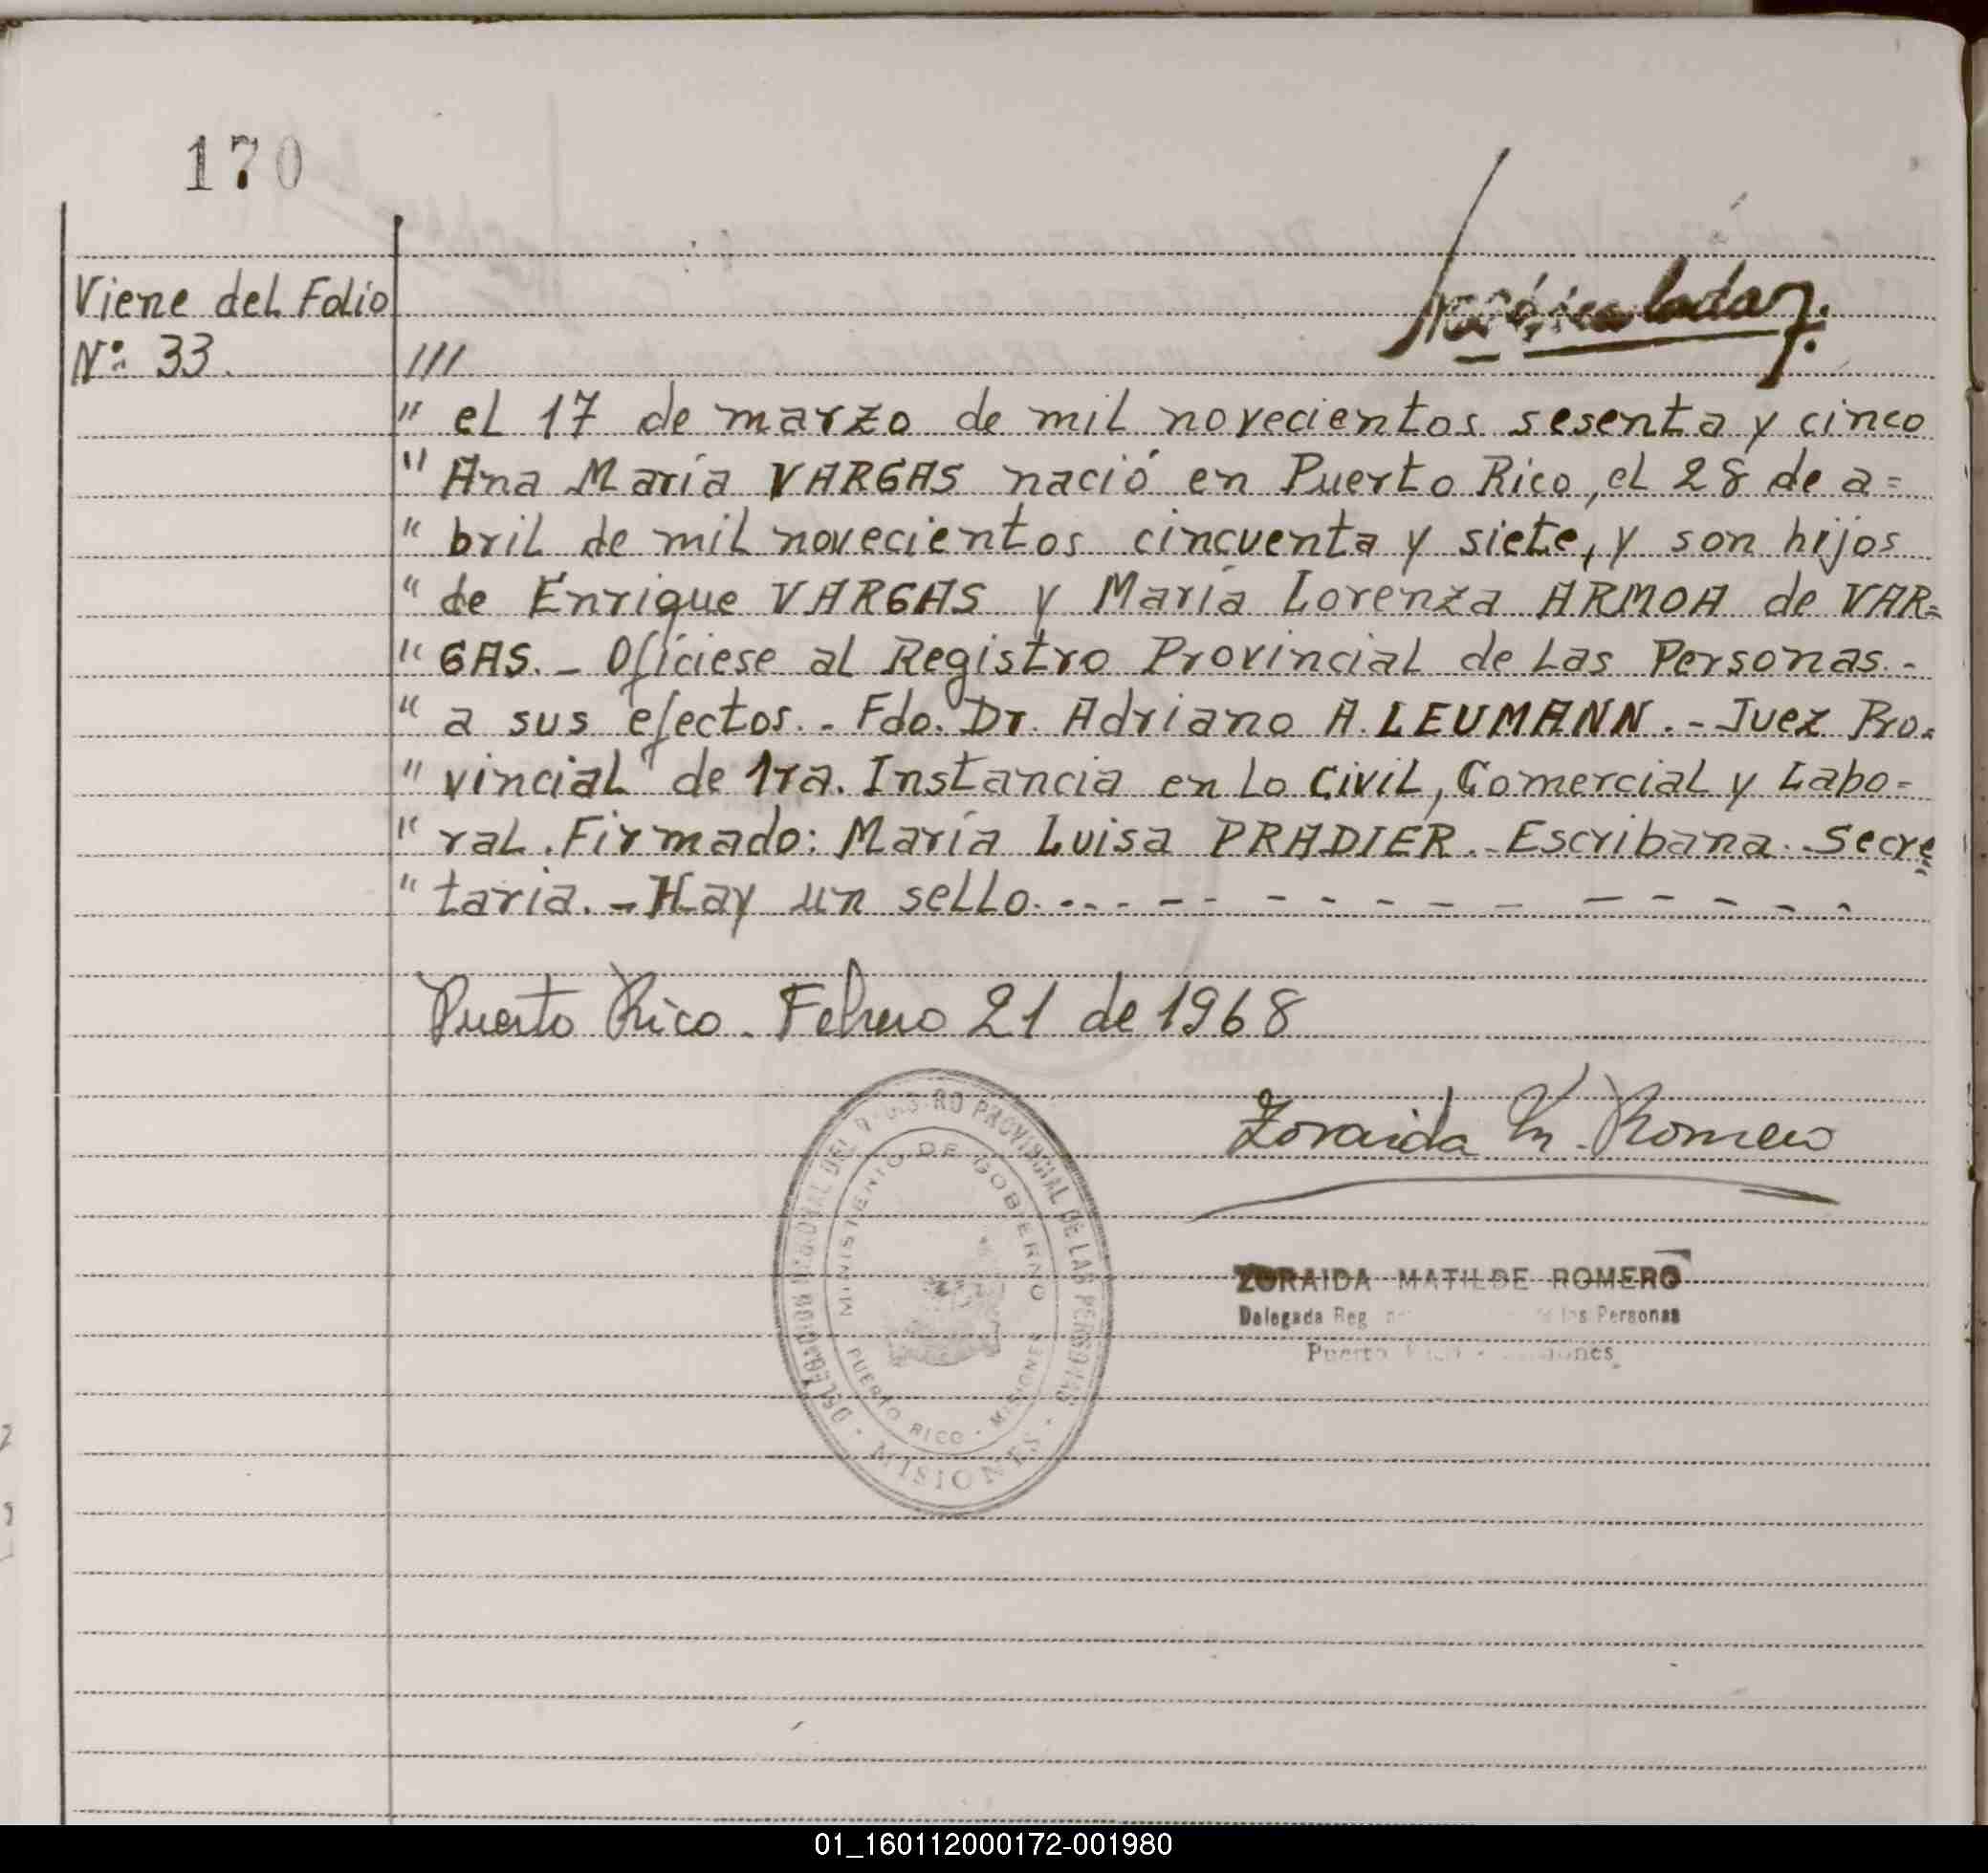 170
Viene del Folio
Nº: 33.
///
" el 17 de marzo de mil novecientos sesenta y cinco
" Ana María VARGAS nació en Puerto Rico, el 28 de a=
" bril de mil novecientos cincuenta y siete, y son hijos
" de Enrique VARGAS y María Lorenza ARMOA de VAR=
" GAS. - Ofíciese al Registro Provincial de Las Personas. -
" a sus efectos. - Fdo. Dr. Adriano A. LEUMANN. - Juez Pro=
" vincial de 1ra. Instancia en Lo Civil, Comercial y Labo=
" ral. Firmado: María Luisa PRADIER. Escribana. Secre
" taria. - Hay un sello. - - - - - - - - - - - - - - -
Puerto Rico. Febrero 21 de 1968
Zoraida M. Romero
DELEGACION REGIONAL DEL REGISTRO PROVINCIAL DE LAS PERSONAS
· MISIONES ·
MINISTERIO DE GOBIERNO
PUERTO RICO - MISIONES
ZORAIDA MATILDE ROMERO
Delegada Reg las Personas
Puerto Rico - Misiones
01_160112000172-001980